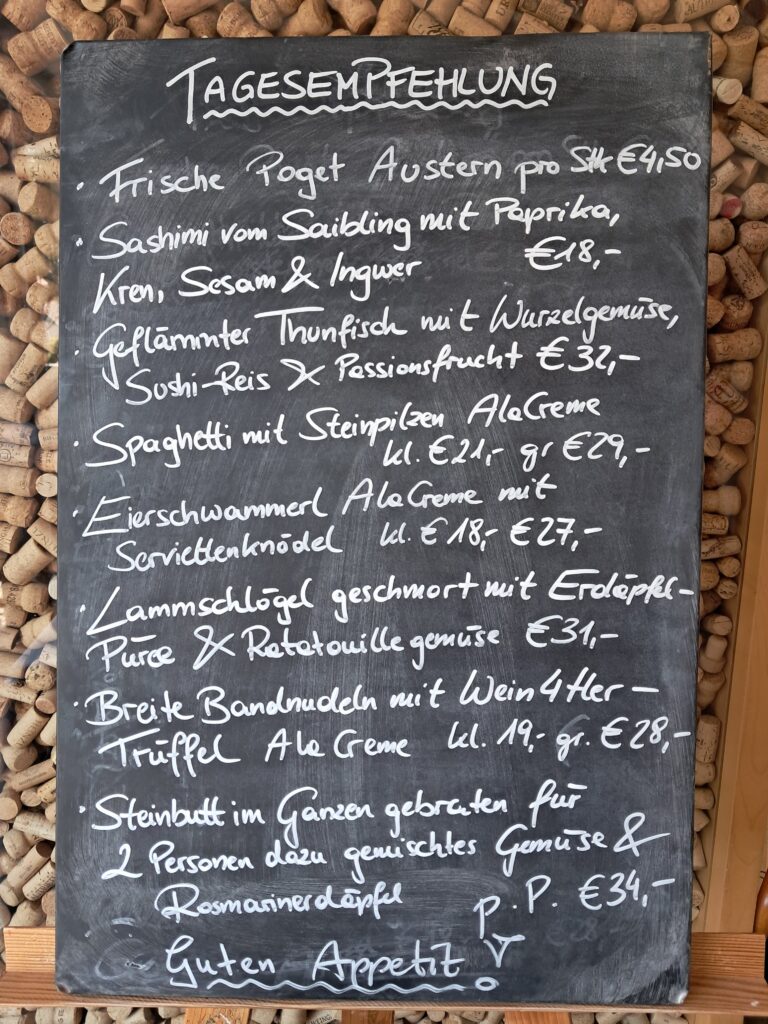 TAGESEMPFEHLUNG
· Frische Poget Austern pro Stk €4,50
· Sashimi vom Saibling mit Paprika,
Kren, Sesam & Ingwer €18,-
· Geflämmter Thunfisch mit Wurzelgemüse,
Sushi-Reis & Passionsfrucht €32,-
· Spaghetti mit Steinpilzen Ala Creme
kl. €21,- gr €29,-
· Eierschwammerl Ala Creme mit
Serviettenknödel kl. €18,- €27,-
· Lammschlögel geschmort mit Erdäpfel-
Püree & Ratatouillegemüse €31,-
· Breite Bandnudeln mit Wein4tler-
Trüffel Ala Creme kl. 19,- gr. €28,-
· Steinbutt im Ganzen gebraten für
2 Personen dazu gemischtes Gemüse &
Rosmarinerdäpfel p.P. €34,-
Guten Appetit!